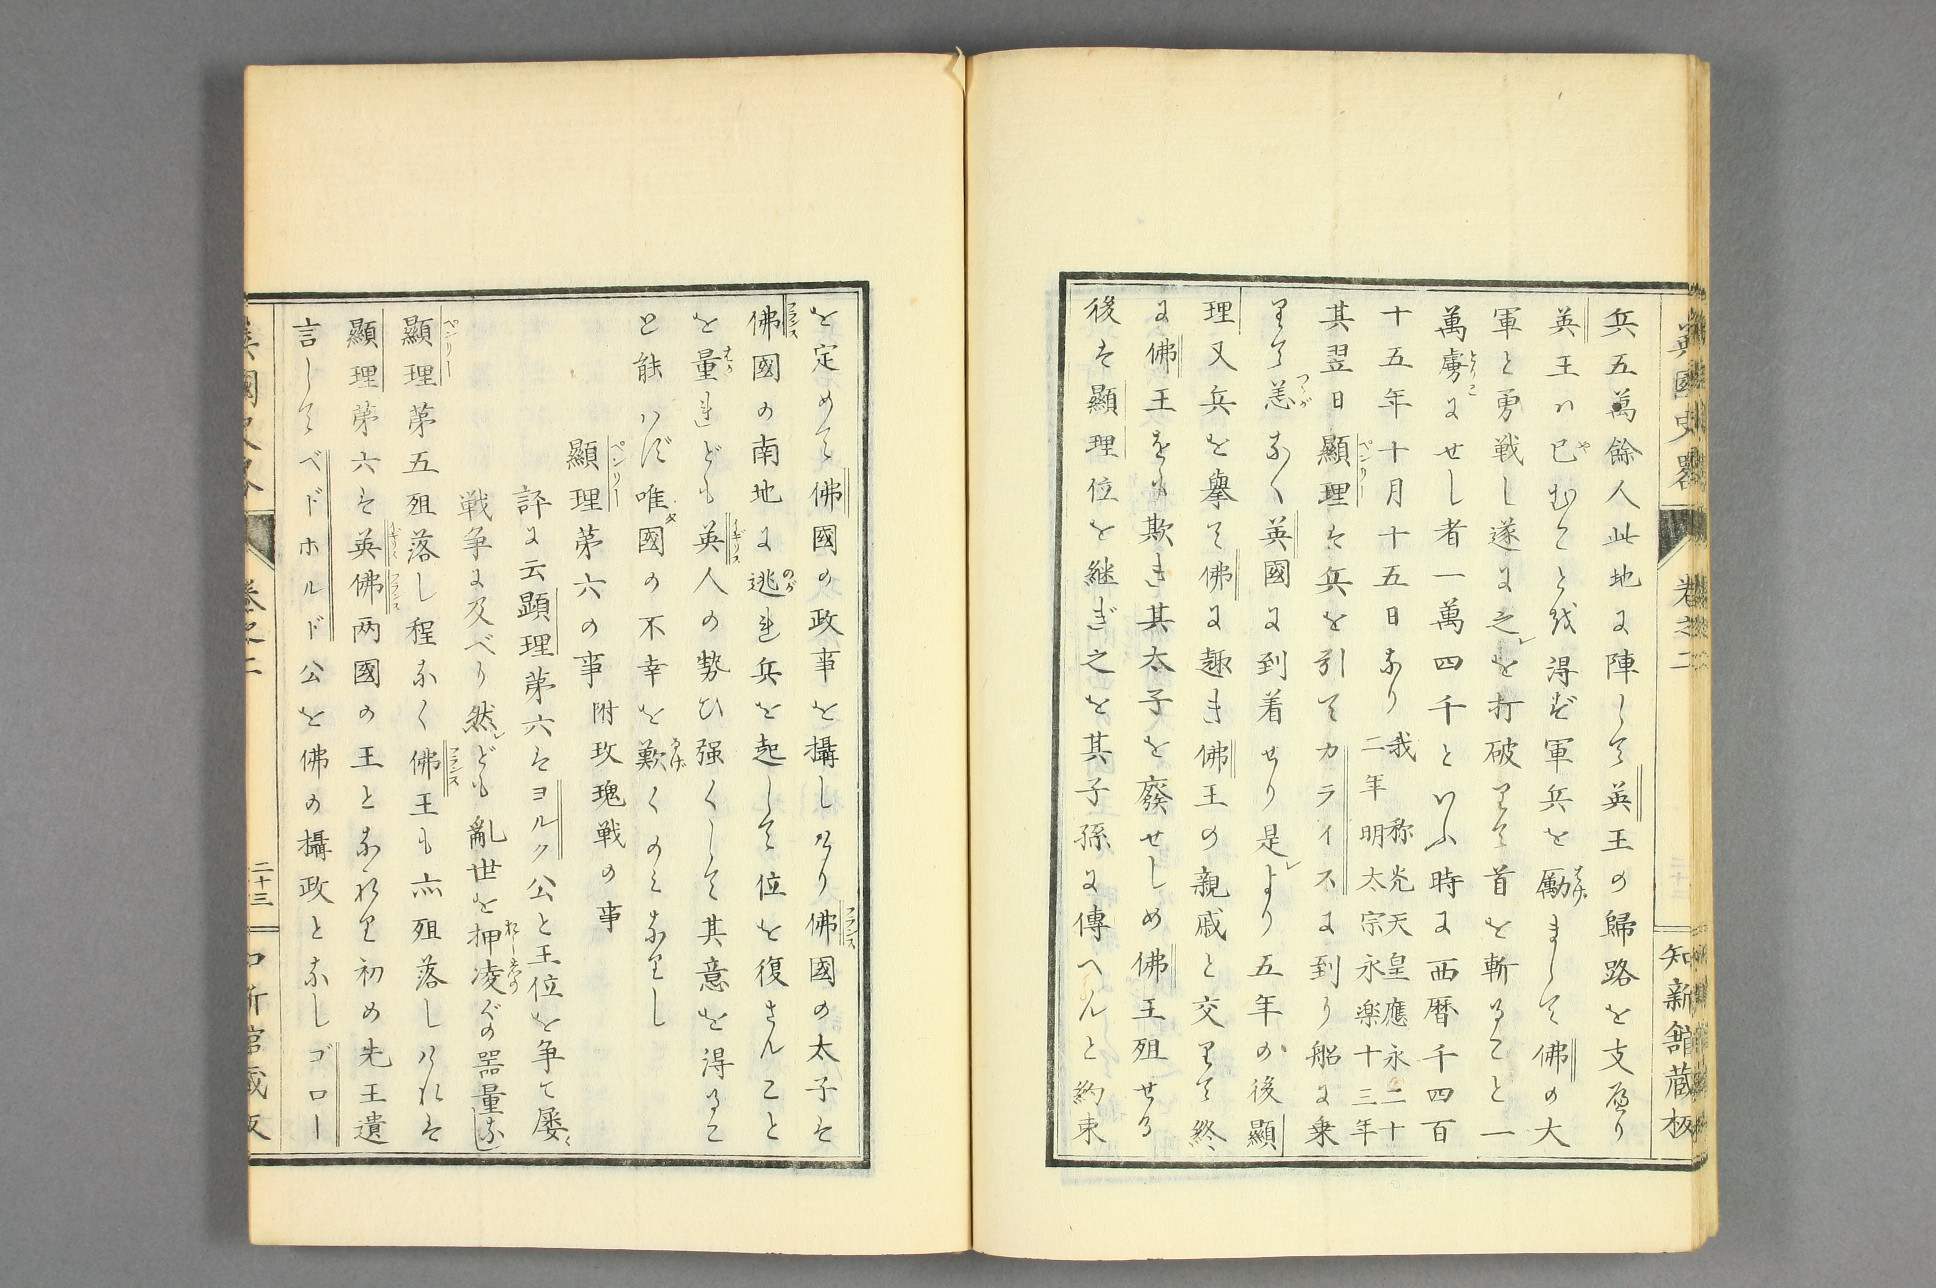 英國史畧 巻之二 知新舘蔵板
兵五萬餘人此地に陣して英王の歸路を支へたり
英王ハ已むことを得ず軍兵を励まして佛の大
軍と勇戦し遂に之を打破りて首を斬ること一
萬虜にせし者一萬四千といふ時に西暦千四百
十五年十月十五日なり我称光天皇應永二十
二年明太宗永楽十三年
其翌日顯理は兵を引てカライスに到り船に乗
りて恙なく英國に到着せり是より五年の後顯
理又兵を擧て佛に趣き佛王の親戚と交りて終
に佛王をも欺き其太子を廢せしめ佛王殂せる
後は顯理位を継ぎ之を其子孫に傳へんと約束
を定めて佛國の政事を攝しけり佛國の太子は
佛國の南地に逃れ兵を起して位を復さんこと
を量れども英人の勢ひ强くして其意を得るこ
と能はず唯國の不幸を歎くのみなりし
顯理第六の事 附玫瑰戦の事
評に云顕理第六はヨルク公と王位を争て屡〻
戦争に及べり然ども亂世を押凌ぐの器量な
顯理第五殂落し程なく佛王も亦殂落しければ
顯理第六は英佛两國の王となれり初め先王遺
言してベドホルド公を佛の攝政となしゴロー
巻之二 二十三